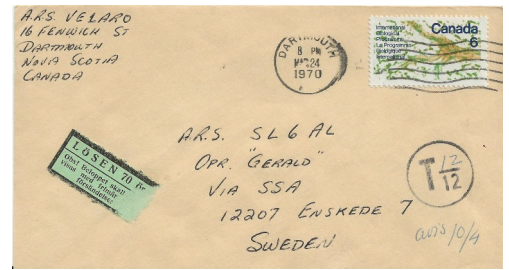 A.R.S. VE1ARO
16 FENWICH ST
DARTMOUTH
NOVA SCOTIA
CANADA
DARTMOUTH
8 PM
24
1970
International
Biological
Programme
Le Programme
biologique
international
Canada
6
LÖSEN 70 öre
Obs! Beloppet skall
visas med felande
försändelse
A.R.S. SL6AL
OPR. "GERALD"
VIA SSA
12207 ENSKEDE 7
SWEDEN
T 12/12
avis 10/4